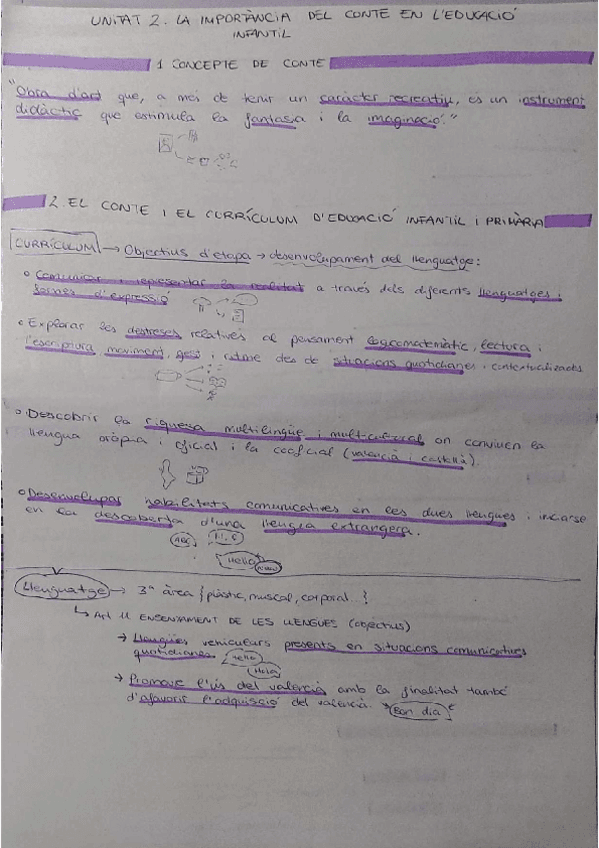 UNITAT 2. LA IMPORTÀNCIA DEL CONTE EN L'EDUCACIÓ
INFANTIL
1 CONCEPTE DE CONTE
"Obra d'art que, a més de tenir un caràcter recreatiu, és un instrument
didàctic que estimula la fantasia i la imaginació."
2. EL CONTE I EL CURRÍCULUM D'EDUCACIÓ INFANTIL I PRIMÀRIA
CURRÍCULUM → Objectius d'etapa → desenvolupament del llenguatge:
Comunicar i representar la realitat a través dels diferents llenguatges i
formes d'expressió
Explorar les destreses relatives al pensament logicomatemàtic, lectura i
l'escriptura, moviment, gest i ritme des de situacions quotidianes i contextualitzades
Descobrir la riquesa multilingüe i multicultural on conviuen la
llengua pròpia i oficial i la cooficial (valencià i castellà).
Desenvolupar habilitats comunicatives en les dues llengües i iniciar-se
en la descoberta d'una llengua estrangera.
ABC
Hello
Llenguatge → 3ª àrea {plàstic, musical, corporal...}
↳ Art 11 ENSENYAMENT DE LES LLENGÜES (objectius)
→ Llengües vehiculars presents en situacions comunicatives
quotidianes. Hello
Hola
→ Promove l'ús del valencià amb la finalitat també
d'afavorir l'adquisició del valencià. Bon dia